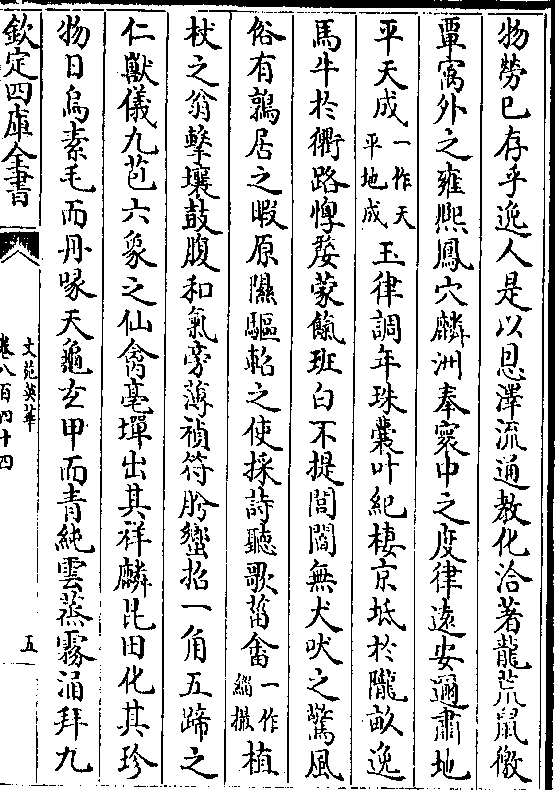 物勞已存乎逸人是以恩澤流通教化洽著龍荒鼠徼
覃寓外之雍熈鳳穴麟洲奉寰中之度律遠安邇肅地
平天成一作天平地成玉律調年珠囊叶紀棲京坻於隴畝逸
馬牛於衢路惸嫠蒙餼班白不提閭閻無犬吠之驚風
俗有鶉居之暇原隰驅軺之使採詩聽歌菑畬一作緇撮植
杖之翁擊壤鼓腹和氣旁薄禎符肸蠁招一角五蹄之
仁獸儀九苞六象之仙禽亳墠出其祥麟芘田化其珍
物日烏素毛而丹喙天龜玄甲而青純雲蒸霧涌拜九
欽定四庫全書
文苑英華
卷八百四十四
五